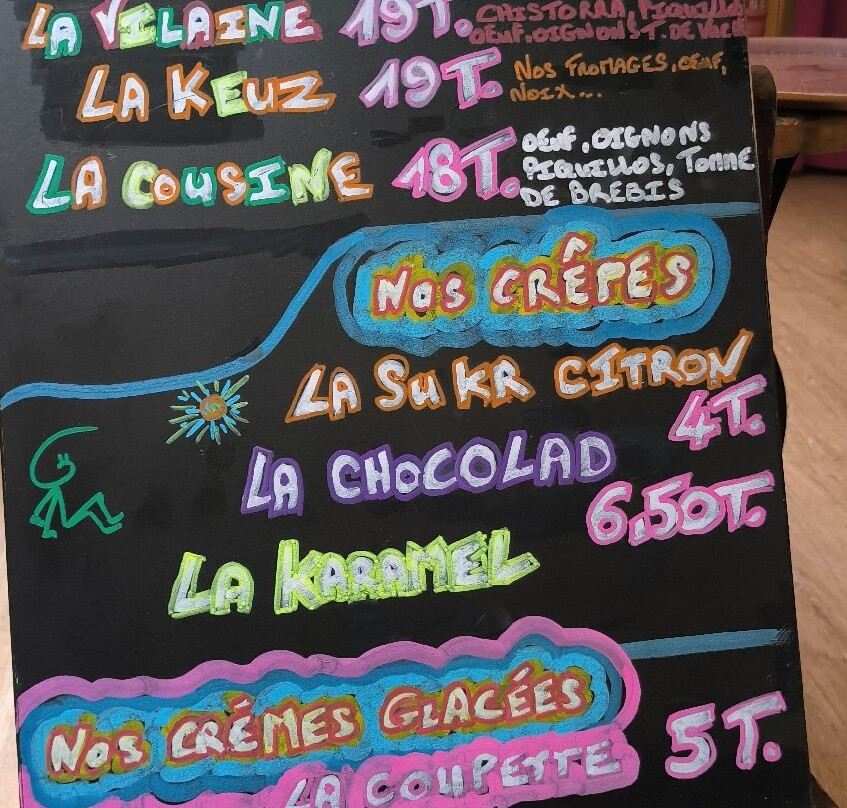 LA VILAINE 19T. CHISTORRA, PIQUILLO
OEUF, OIGNONS T. DE VACH
LA KEUZ 19T. NOS FROMAGES, OEUF,
NOIX...
LA COUSINE 18T. OEUF, OIGNONS
PIQUILLOS, TOMME
DE BREBIS
NOS CRÊPES
LA SUKR CITRON
4T.
LA CHOCOLAD
6,50T.
LA KARAMEL
NOS CRÉMES GLACÉES
5T.
LA COUPETTE